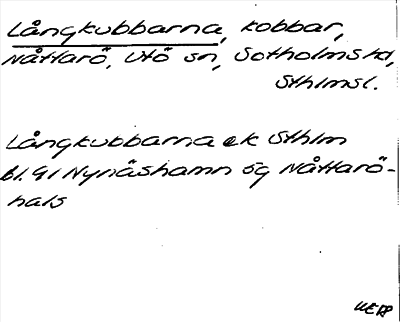 Långkubbarna, kobbar,
Nåttarö, Utö sn, Sotholms hd,
Sthlmsl.
Långkubbarna ek Sthlm
bl. 91 Nynäshamn 5g Nåttarö-
hals